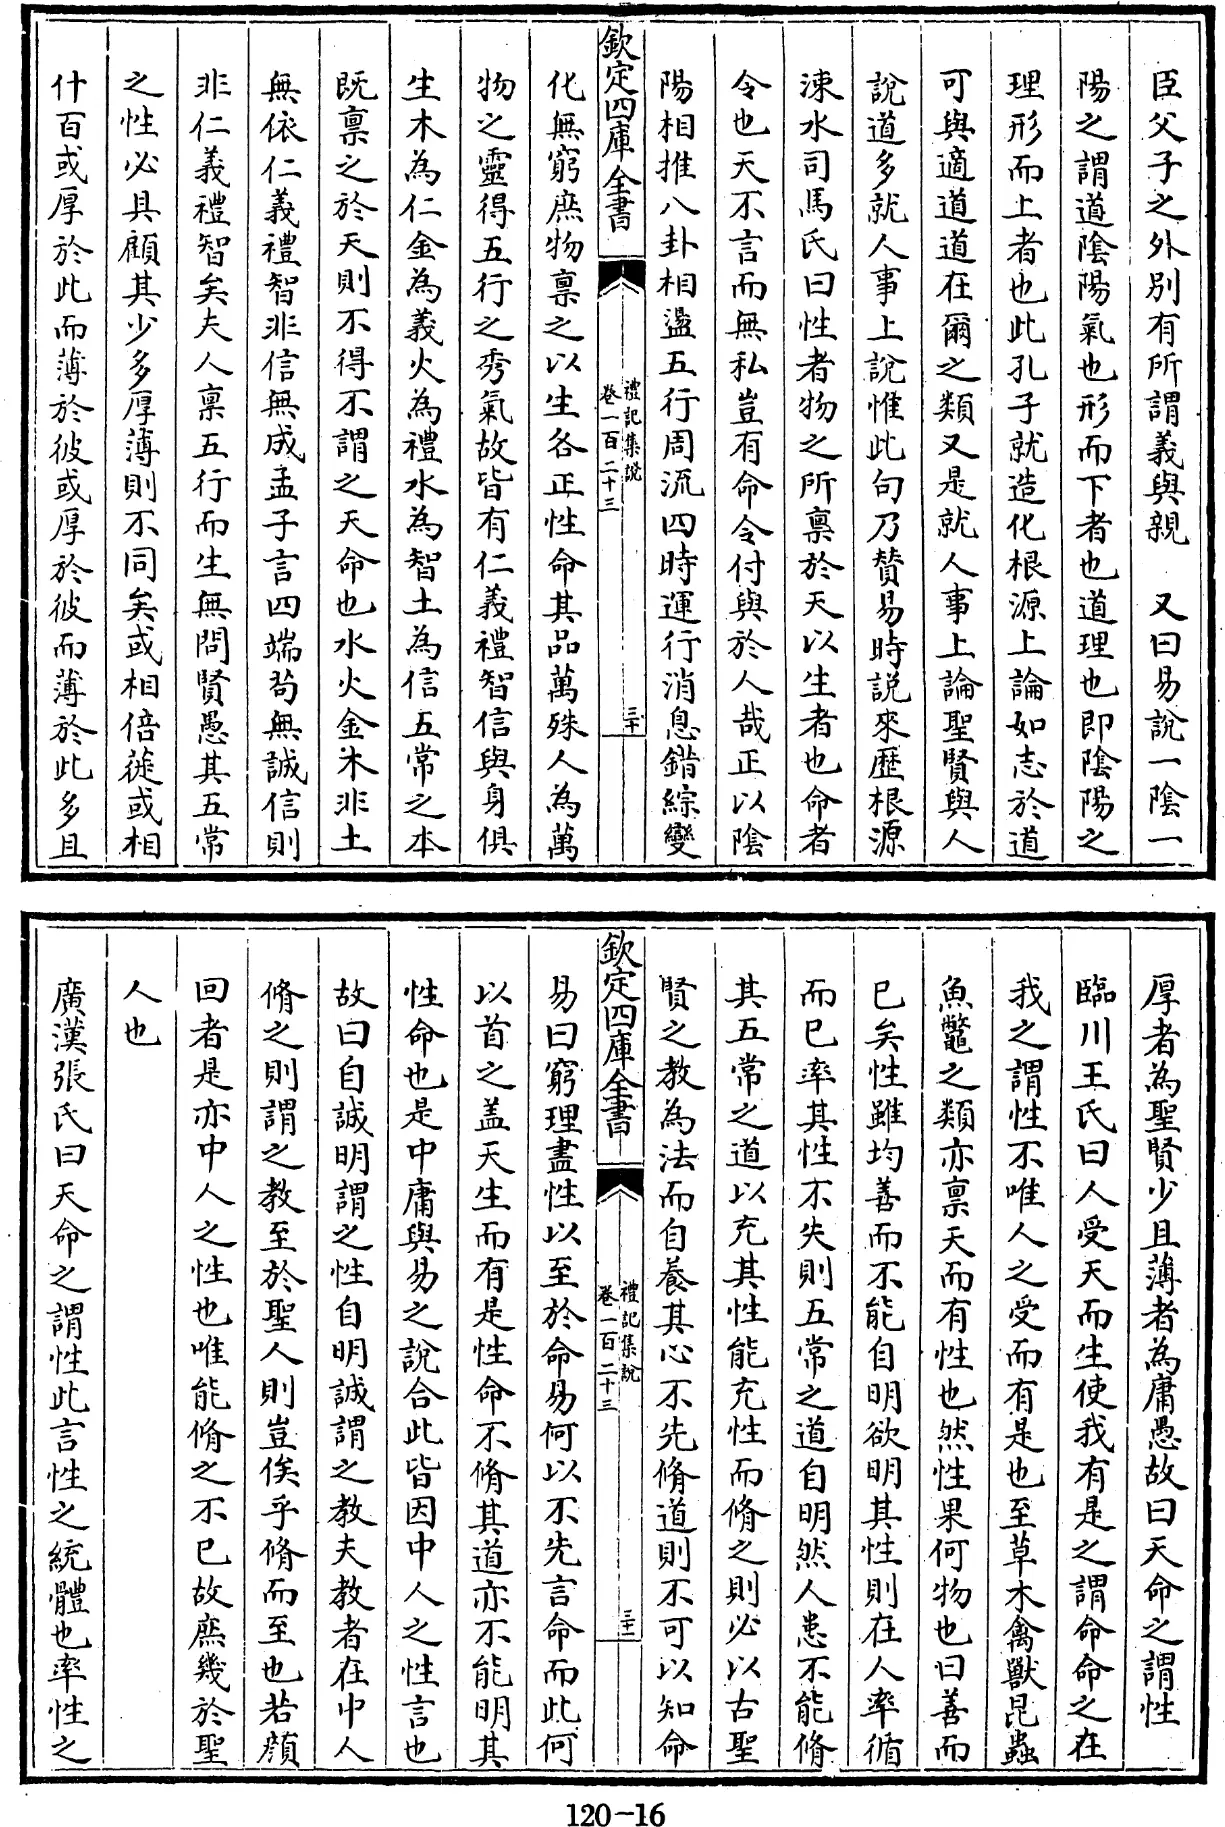 臣父子之外別有所謂義與親　又曰易說一陰一
陽之謂道陰陽氣也形而下者也道理也即陰陽之
理形而上者也此孔子就造化根源上論如志於道
可與適道道在爾之類又是就人事上論聖賢與人
說道多就人事上說惟此句乃贊易時説來歷根源
涑水司馬氏曰性者物之所禀於天以生者也命者
令也天不言而無私豈有命令付與於人哉正以陰
陽相推八卦相盪五行周流四時運行消息錯綜變
欽定四庫全書
禮記集說
卷一百二十三
三十
化無窮庶物禀之以生各正性命其品萬殊人為萬
物之靈得五行之秀氣故皆有仁義禮智信與身俱
生木為仁金為義火為禮水為智土為信五常之本
既禀之於天則不得不謂之天命也水火金木非土
無依仁義禮智非信無成孟子言四端茍無誠信則
非仁義禮智矣夫人禀五行而生無問賢愚其五常
之性必具顧其少多厚薄則不同矣或相倍蓰或相
什百或厚於此而薄於彼或厚於彼而薄於此多且
厚者為聖賢少且薄者為庸愚故曰天命之謂性
臨川王氏曰人受天而生使我有是之謂命命之在
我之謂性不唯人之受而有是也至草木禽獸昆蟲
魚鼈之類亦禀天而有性也然性果何物也曰善而
已矣性雖均善而不能自明欲明其性則在人率循
而已率其性不失則五常之道自明然人患不能脩
其五常之道以充其性能充性而脩之則必以古聖
賢之教為法而自養其心不先脩道則不可以知命
欽定四庫全書
禮記集說
卷一百二十三
三十一
易曰窮理盡性以至於命易何以不先言命而此何
以首之盖天生而有是性命不脩其道亦不能明其
性命也是中庸與易之說合此皆因中人之性言也
故曰自誠明謂之性自明誠謂之教夫教者在中人
脩之則謂之教至於聖人則豈俟乎脩而至也若顏
回者是亦中人之性也唯能脩之不已故庶幾於聖
人也
廣漢張氏曰天命之謂性此言性之統體也率性之
120-16